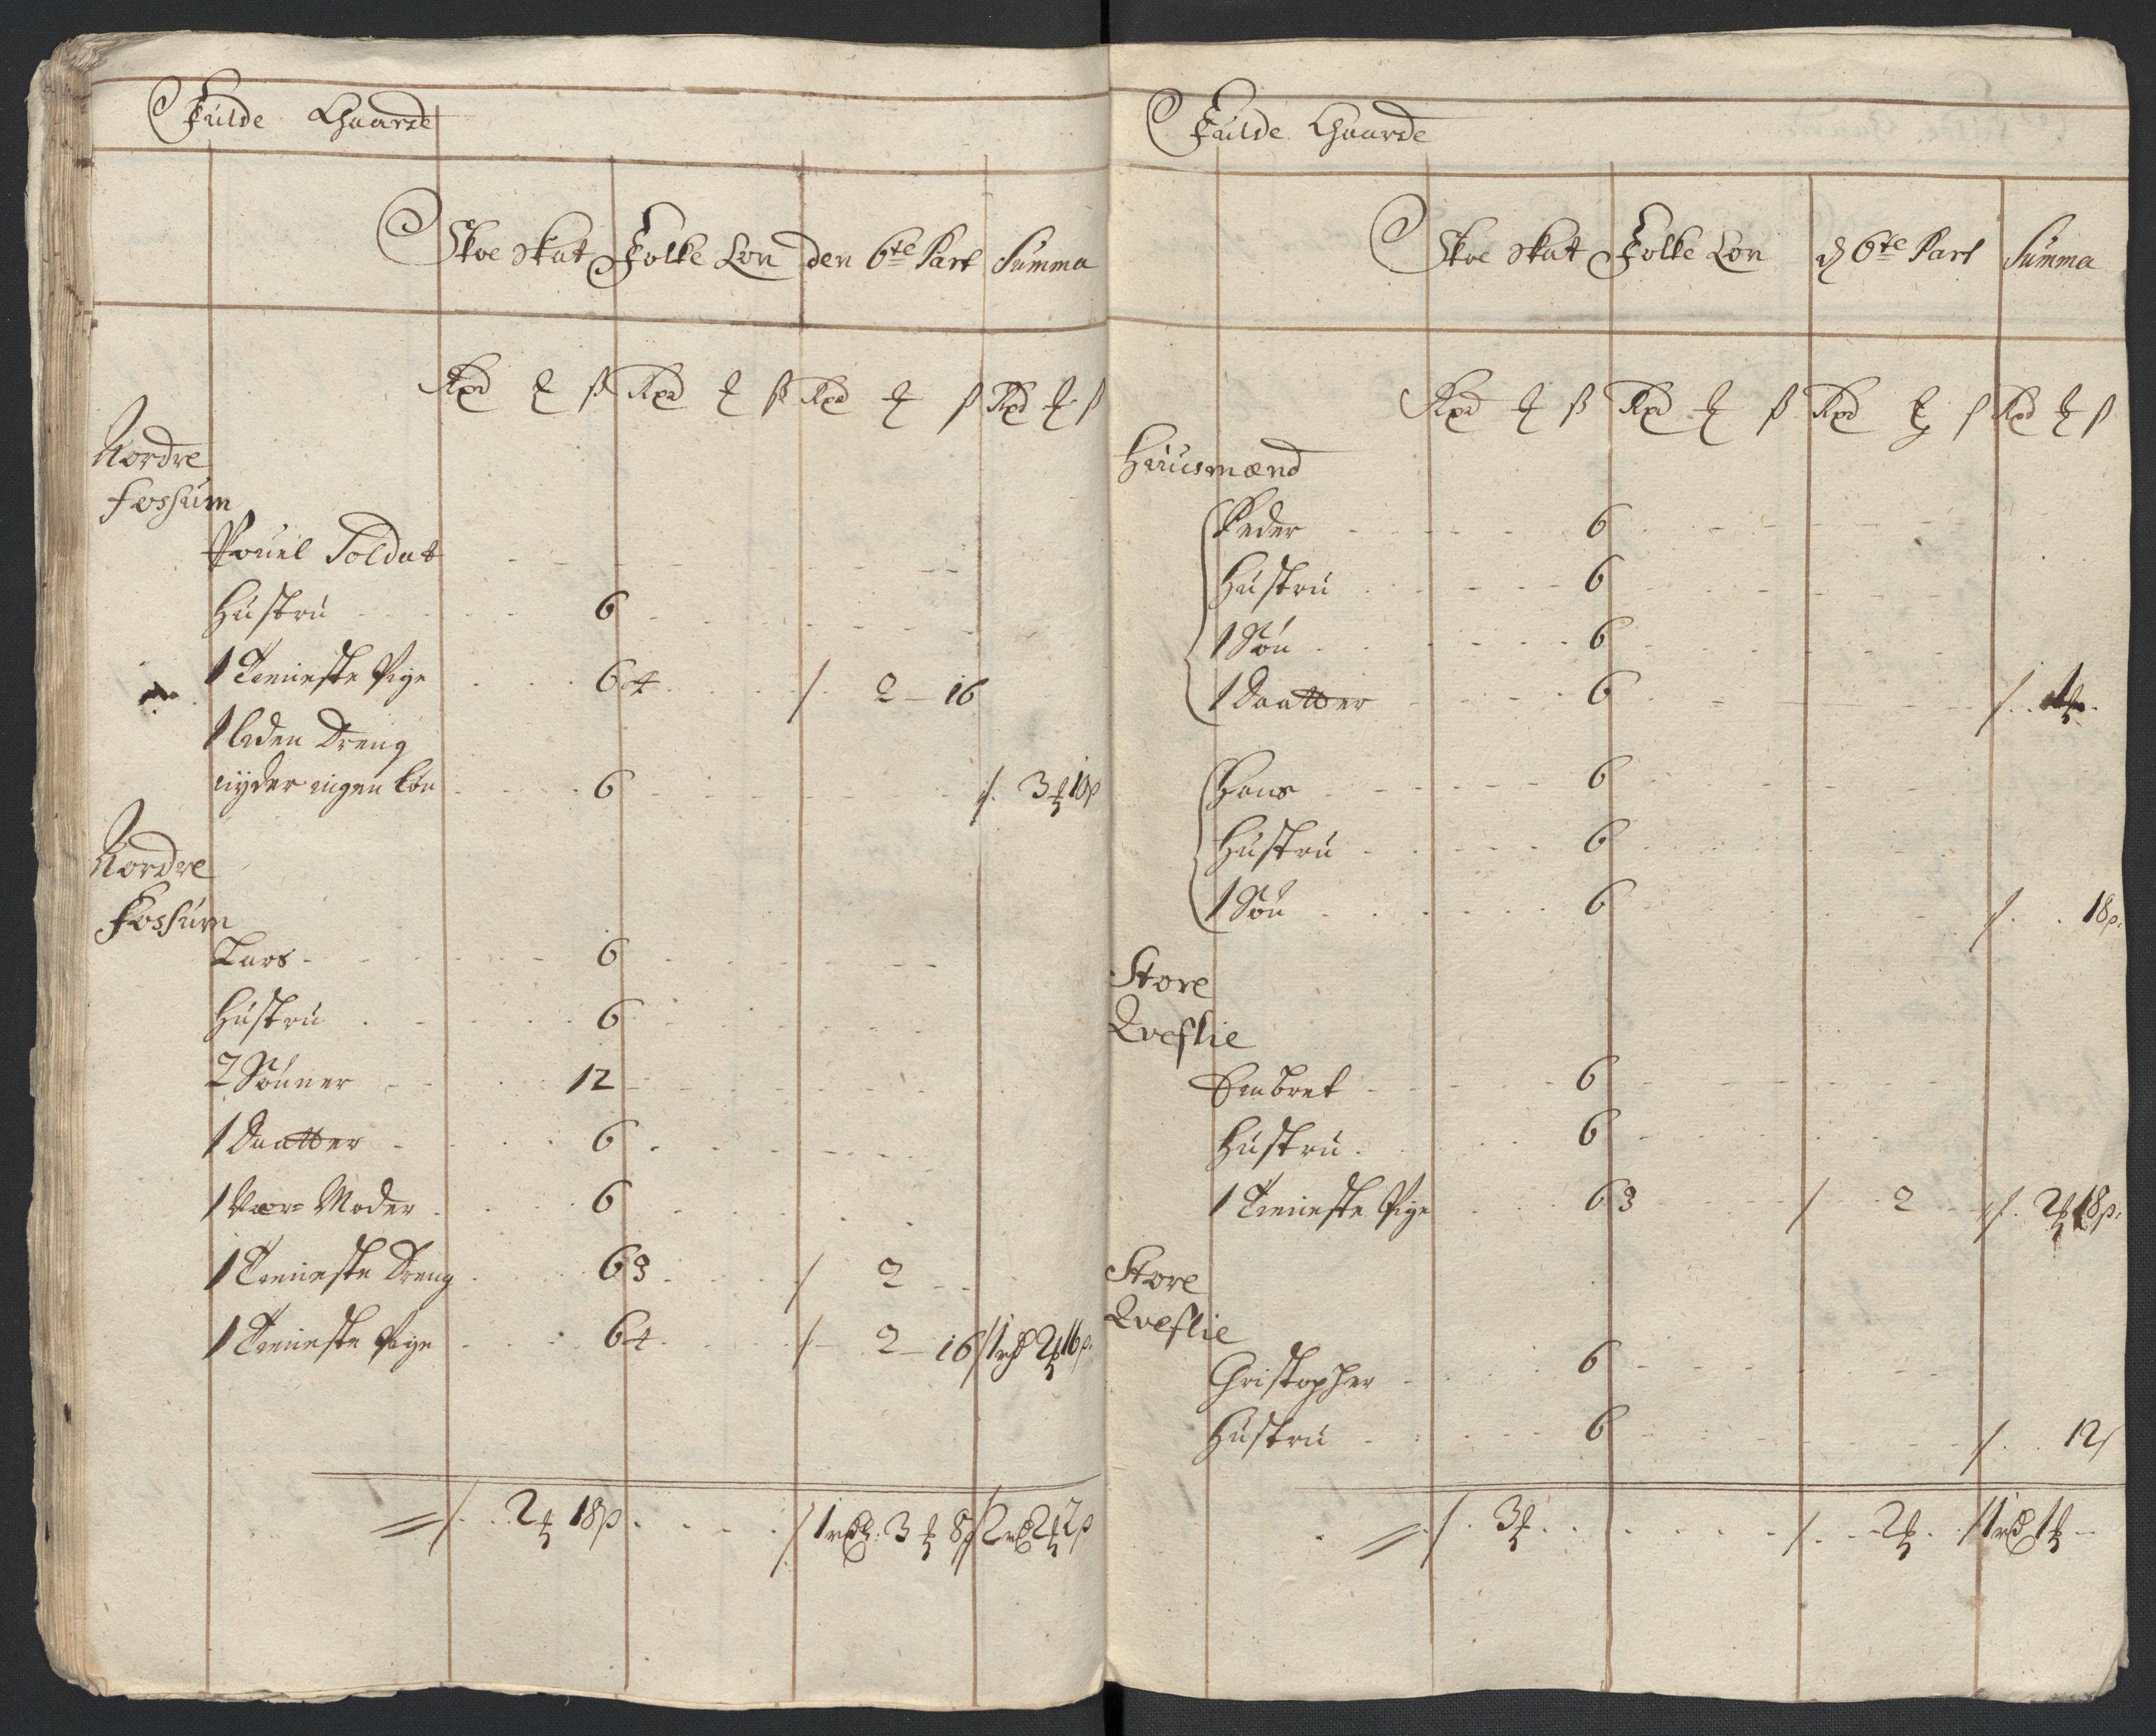 Fulde Gaarde
Skoe Skat Folke Lon den 6te Part Summa
Rxd ß Rxd ß Rxd ß Rxd ß
Nordre
Fossum
Pouel Soldat
Hustru 6
1 Tieneste Pige 6 4 / 2 - 16
1 liden Dreng
nyder ingen løn 6 /. 3 10ß
Nordre
Fossum
Lars 6
Hustru 6
2 Sønner 12
1 Daatter 6
1 Vær= Moder 6
1 Tieneste Dreng 6 3 / 2
1 Tieneste Pige 6 4 / 2 - 16 / 1rd 2 16ß.
/. 2 18ß / 1rd. 3 8ß / 2rd 2 2ß
Fulde Gaarde
Skoe Skat Folke Lon d 6te Part Summa
Rxd ß Rxd ß Rxd ß Rxd ß
Huusmænd
Peder 6
Hustru 6
1 Søn 6
1 Daatter 6 /. 1
Hans 6
Hustru 6
1 Søn 6 /. 18ß.
Store
Qveflie
Embret 6
Hustru 6
1 Tieneste Pige 6 3 / 2 /. 2 18ß.
Store
Qveflie
Christopher 6
Hustru 6 /. 12/
/. 3 /. 2 / 1rd 1